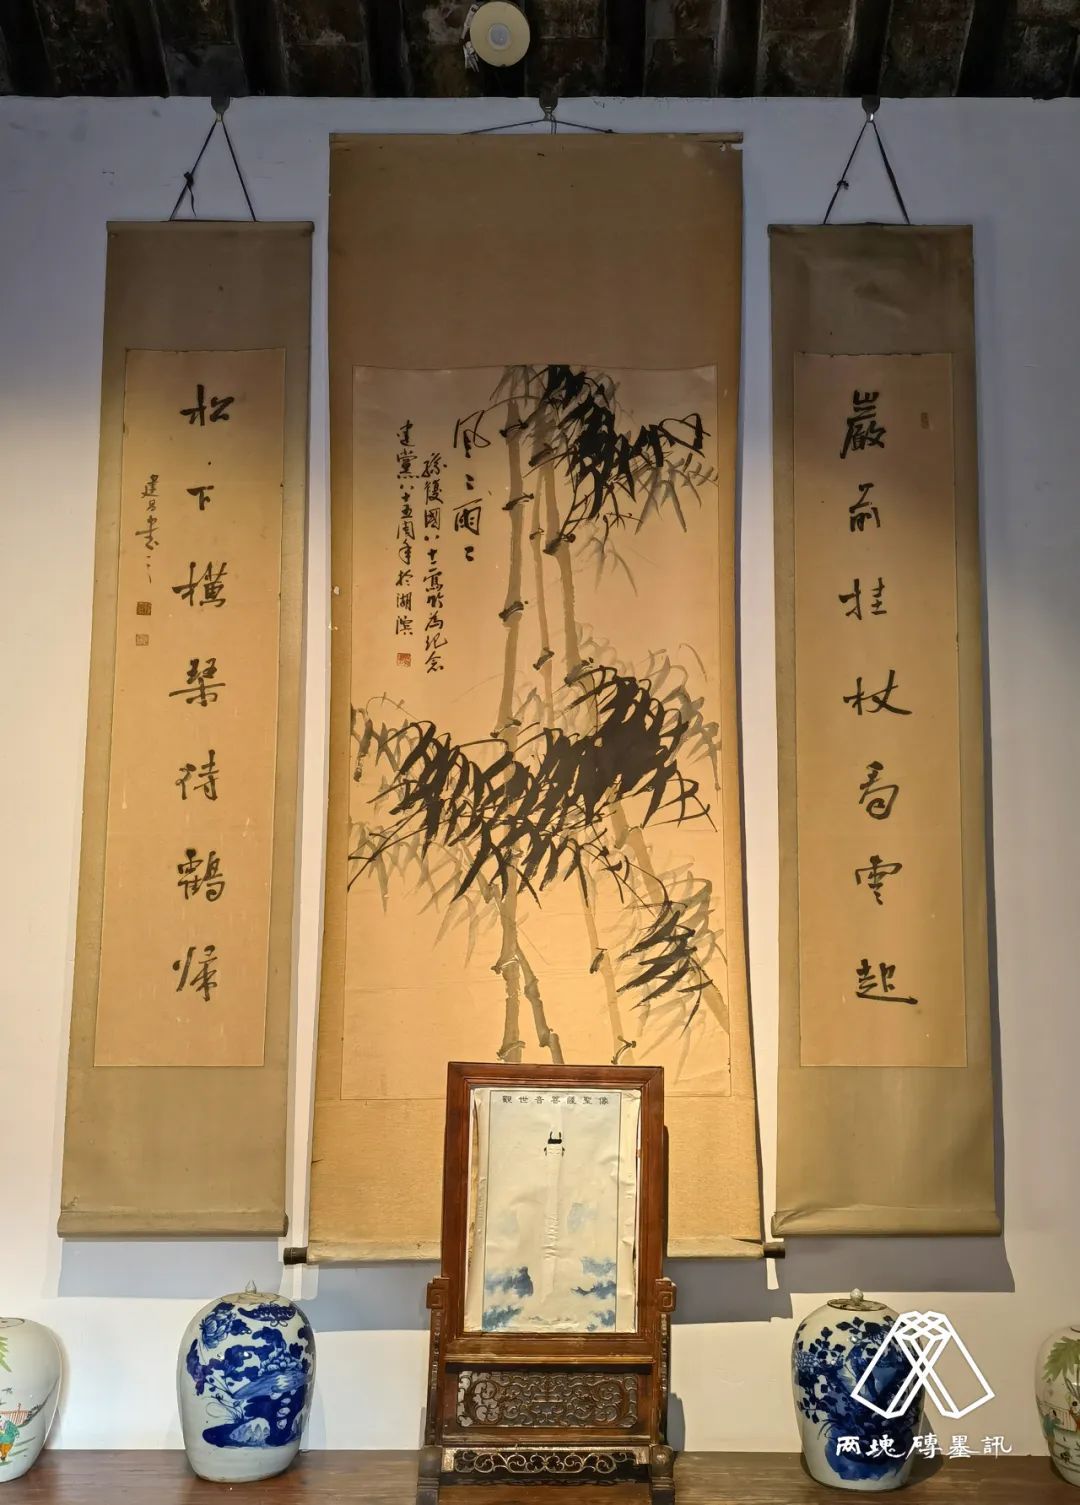 巖前挂杖看雲起
風〻雨〻
孫復國八十一寫竹為紀念
建黨八十五周年於湖濱
松下橫琴待鶴歸
建昌書
觀世音菩薩聖像
两塊磚墨訊